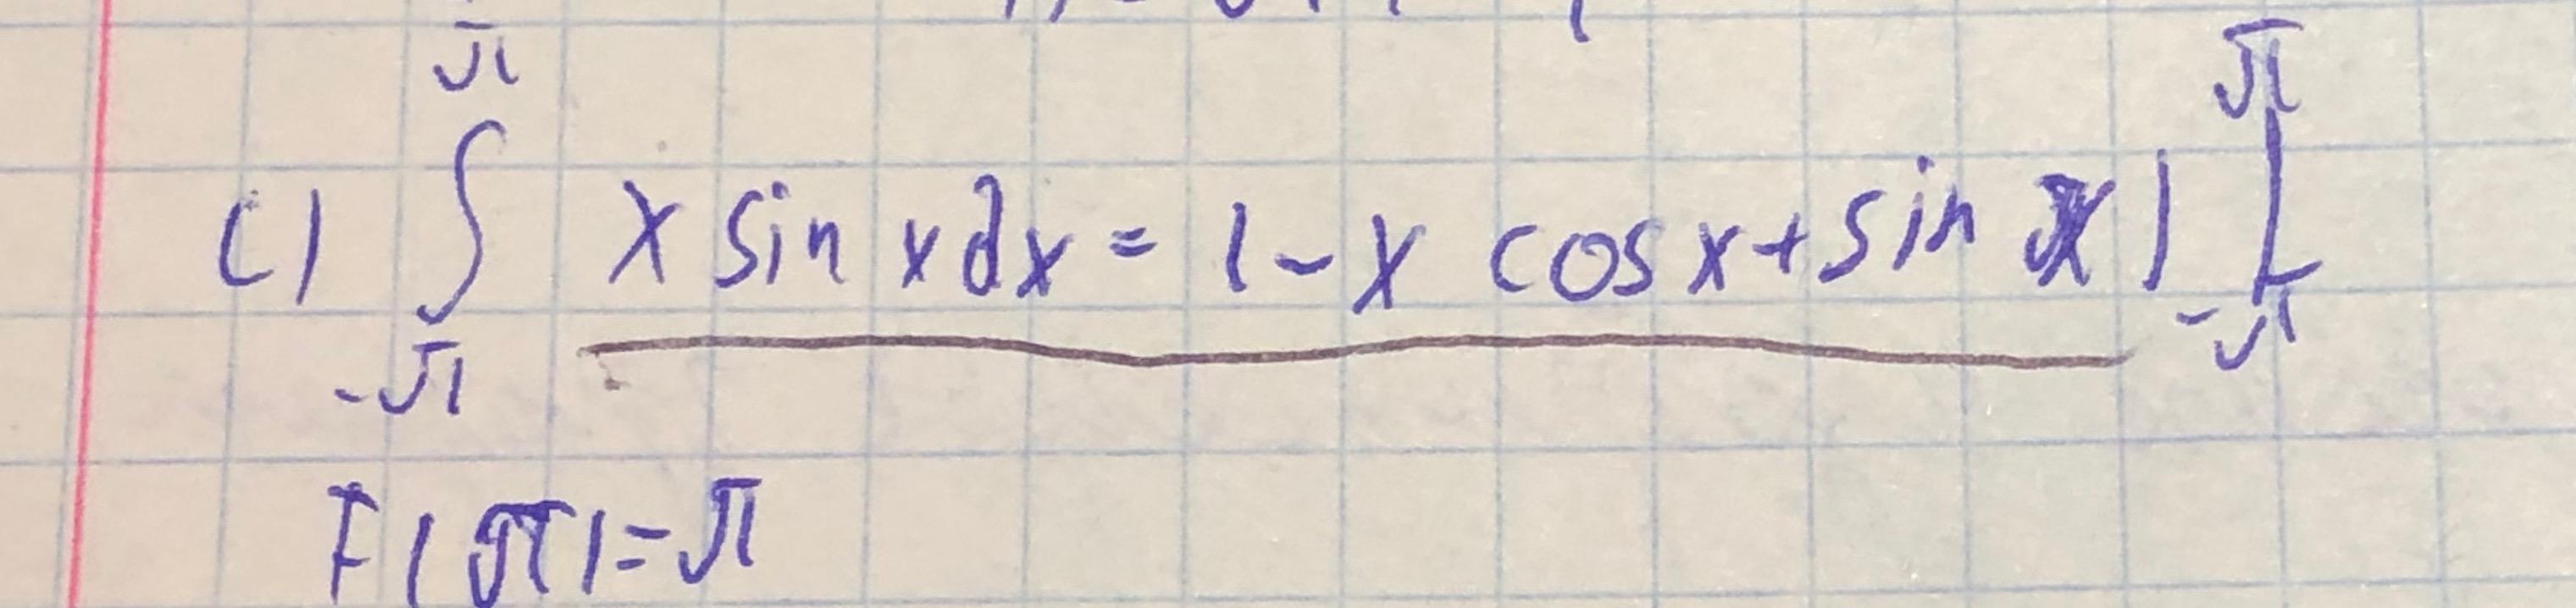 c) ∫_{-π}^{π} x sin x dx = (-x cos x + sin x) |_{-π}^{π}
F(π) = π